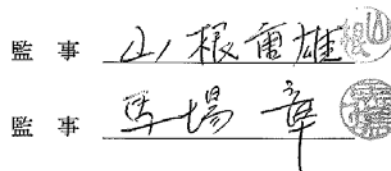 監事 山根重雄
監事 馬場 章